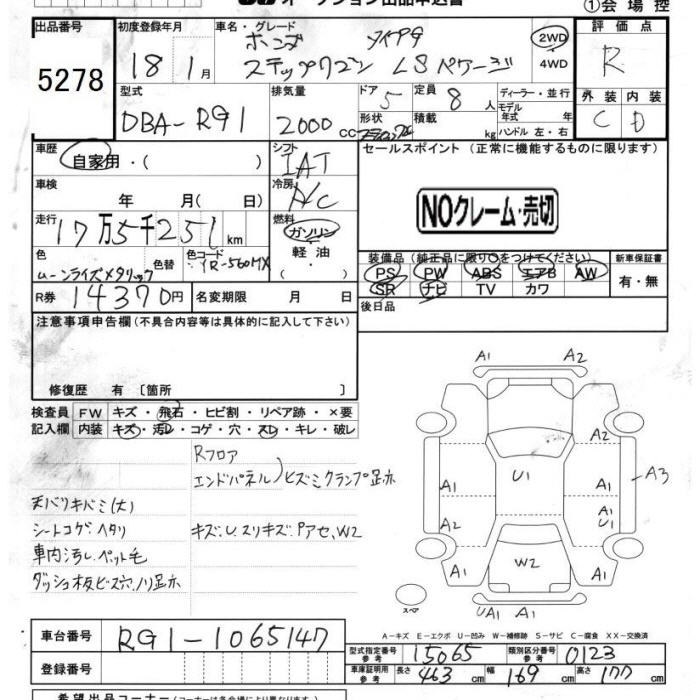 オークション出品申込書
①会場控
出品番号 5278
初度登録年月 18 1月
車名・グレード ホンダ タイプG
ステップワゴン LSパケージ
2WD 4WD
評価点 R
外装 内装
C D
型式 DBA-RG1
排気量 2000cc
ドア 5
形状
定員 8人
積載 kg
ディーラー・並行
モデル年式 年式
ハンドル 左・右
車歴 自家用・( )
シフト IAT
セールスポイント (正常に機能するものに限ります)
車検 年 月( 日)
冷房 A/C
NOクレーム・売切
走行 17万5千251km
燃料 ガソリン
軽油
色 ムーンライズメタリック
色替
色コード YR-560MX
装備品(純正品に限り○をつけてください)
PS PW ABS エアB AW
SR ナビ TV カワ
新車保証書 有・無
R券 14370円
名変期限 月 日
後日品
注意事項申告欄(不具合内容等は具体的に記入して下さい)
修復歴 有 [箇所 ]
検査員 FW キズ・飛石・ヒビ割・リペア跡・×要
記入欄 内装 キズ・汚レ・コゲ・穴・スレ・キレ・破レ
Rフロア
エンドパネル ヒズミクランプ足亦
天バリキバミ(大)
シートコゲ、ヘタリ
キズ、U、スリキズ、Pアセ、W2
車内汚し、ペット毛
ダッシュ板ビス穴、ノリ足亦
A1 A2
A2
U1 A3
A1 A1
A2 A1
U1
A1 W2 A1
UA1 A1
スペア
A-キズ E-エクボ U-凹み W-補修跡 S-サビ C-腐食 XX-交換済
車台番号 RG1-1065147
登録番号
型式指定番号 参考 15065
類別区分番号 参考 0123
車庫証明用 参考 長さ 463cm 幅 169cm 高さ 177cm
希望出品コーナー(コーナーは各会場により異なります)